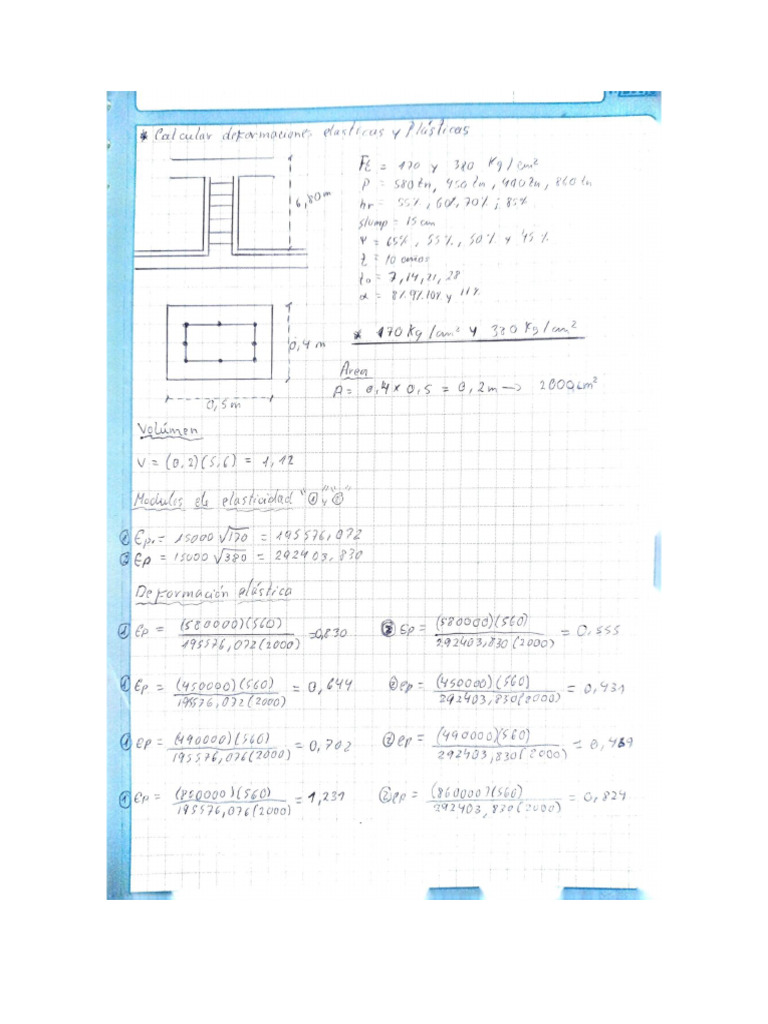 * Calcular deformaciones elasticas y Plásticas
6,80m
Fc = 170 y 380 Kg/cm²
P = 580tn, 450tn, 490tn, 860tn
hr = 55%, 60%, 70% ; 85%
slump = 15 cm
Ψ = 65%, 55%, 50% y 45%
t = 10 años
to = 7, 14, 21, 28
α = 8%, 9%, 10% y 11%
0,4 m
0,5m
* 170 Kg/cm² y 380 Kg/cm²
Area
A = 0,4 x 0,5 = 0,2m → 2000cm²
Volúmen
V = (0,2)(5,6) = 1,12
Modulos de elasticidad "① y ②"
① Ep. = 15000 √170 = 195576,072
② Ep = 15000 √380 = 292403,830
Deformación elástica
① Ep = (580000)(560) / 195576,072(2000) = 0,830
② Ep = (580000)(560) / 292403,830(2000) = 0,555
① Ep = (450000)(560) / 195576,072(2000) = 0,644
② ep = (450000)(560) / 292403,830(2000) = 0,431
① Ep = (490000)(560) / 195576,076(2000) = 0,702
② ep = (490000)(560) / 292403,830(2000) = 0,469
① Ep = (860000)(560) / 195576,076(2000) = 1,231
② ep = (860000)(560) / 292403,830(2000) = 0,824